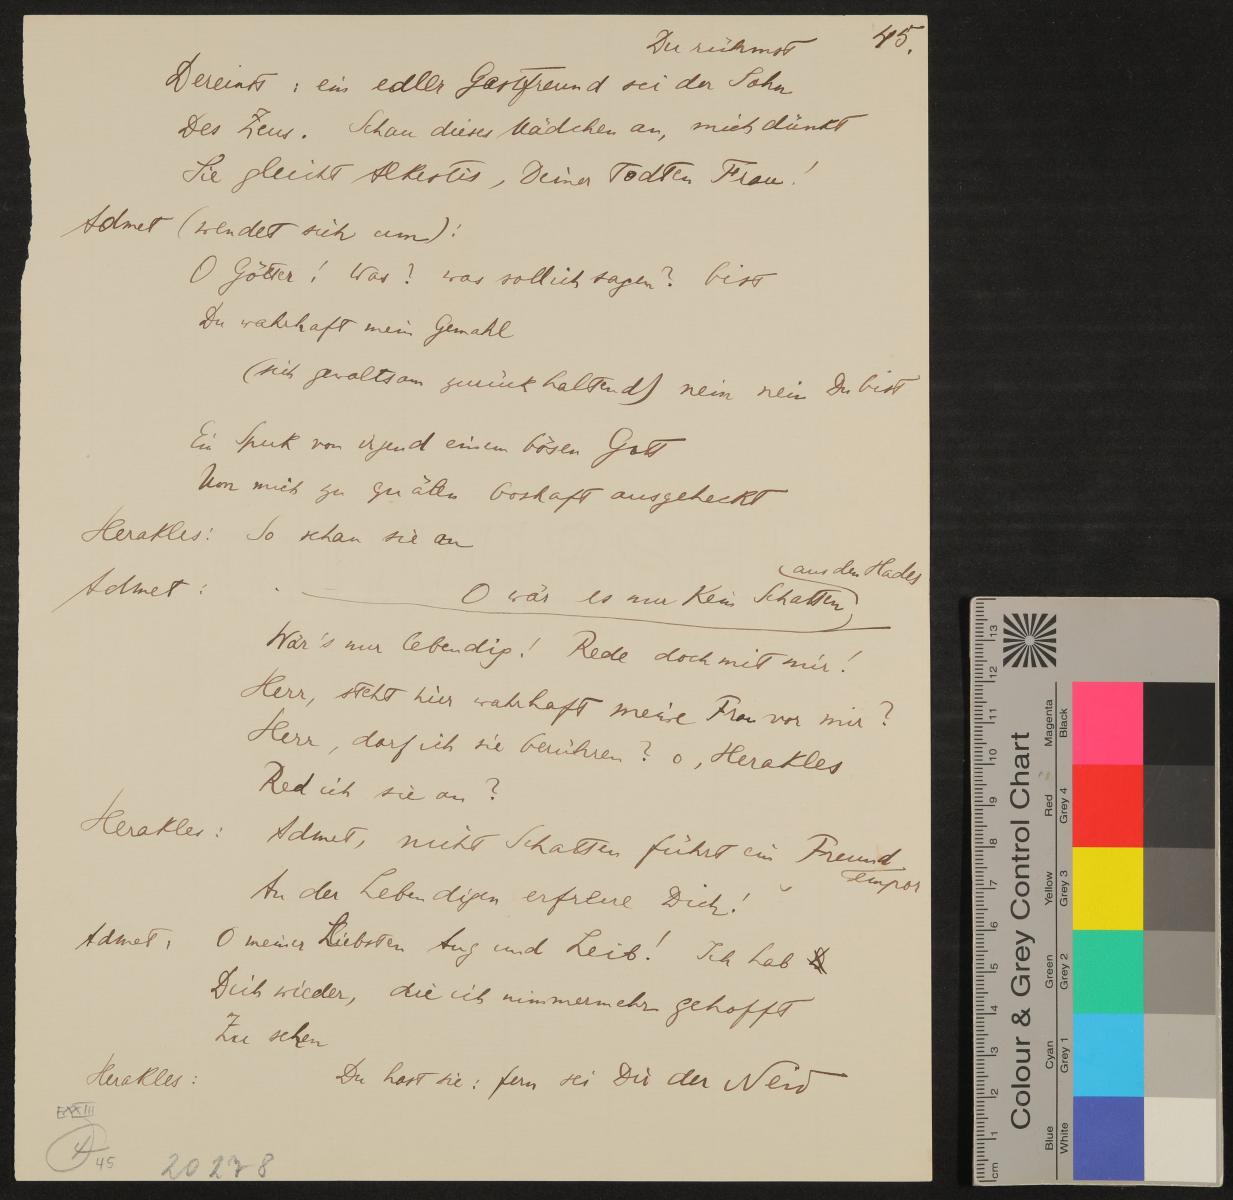 45.
Du rühmst
Dereinst: ein edler Gastfreund sei der Sohn
Des Zeus. Schau dieses Mädchen an, mich dünkt
Sie gleicht Alkestis, Deiner Todten Frau!
Admet (wendet sich um):
O Götter! Was? was soll ich sagen? bist
Du wahrhaft mein Gemahl
(sich gewaltsam zurück haltend) nein nein Du bist
Ein Spuk von irgend einem bösen Gott
Um mich zu quälen boshaft ausgeheckt
Herakles: So schau sie an
Admet: O wär es nur kein Schatten
aus den Hades
Wär's nur lebendig! Rede doch mit mir!
Herr, steht hier wahrhaft meine Frau vor mir?
Herr, darf ich sie berühren? o, Herakles
Red ich sie an?
Herakles: Admet, nicht Schatten führt ein Freund
empor
An der Lebendigen erfreue Dich!
Admet: O meiner Liebsten Aug und Leib! Ich hab
Dich wieder, die ich nimmermehr gehofft
Zu sehen
Herakles: Du hast sie: fern sei Dir der Neid
EXXIII
A 45
20278
Colour & Grey Control Chart
Blue Cyan Green Yellow Red Magenta
White Grey 1 Grey 2 Grey 3 Grey 4 Black
cm 1 2 3 4 5 6 7 8 9 10 11 12 13